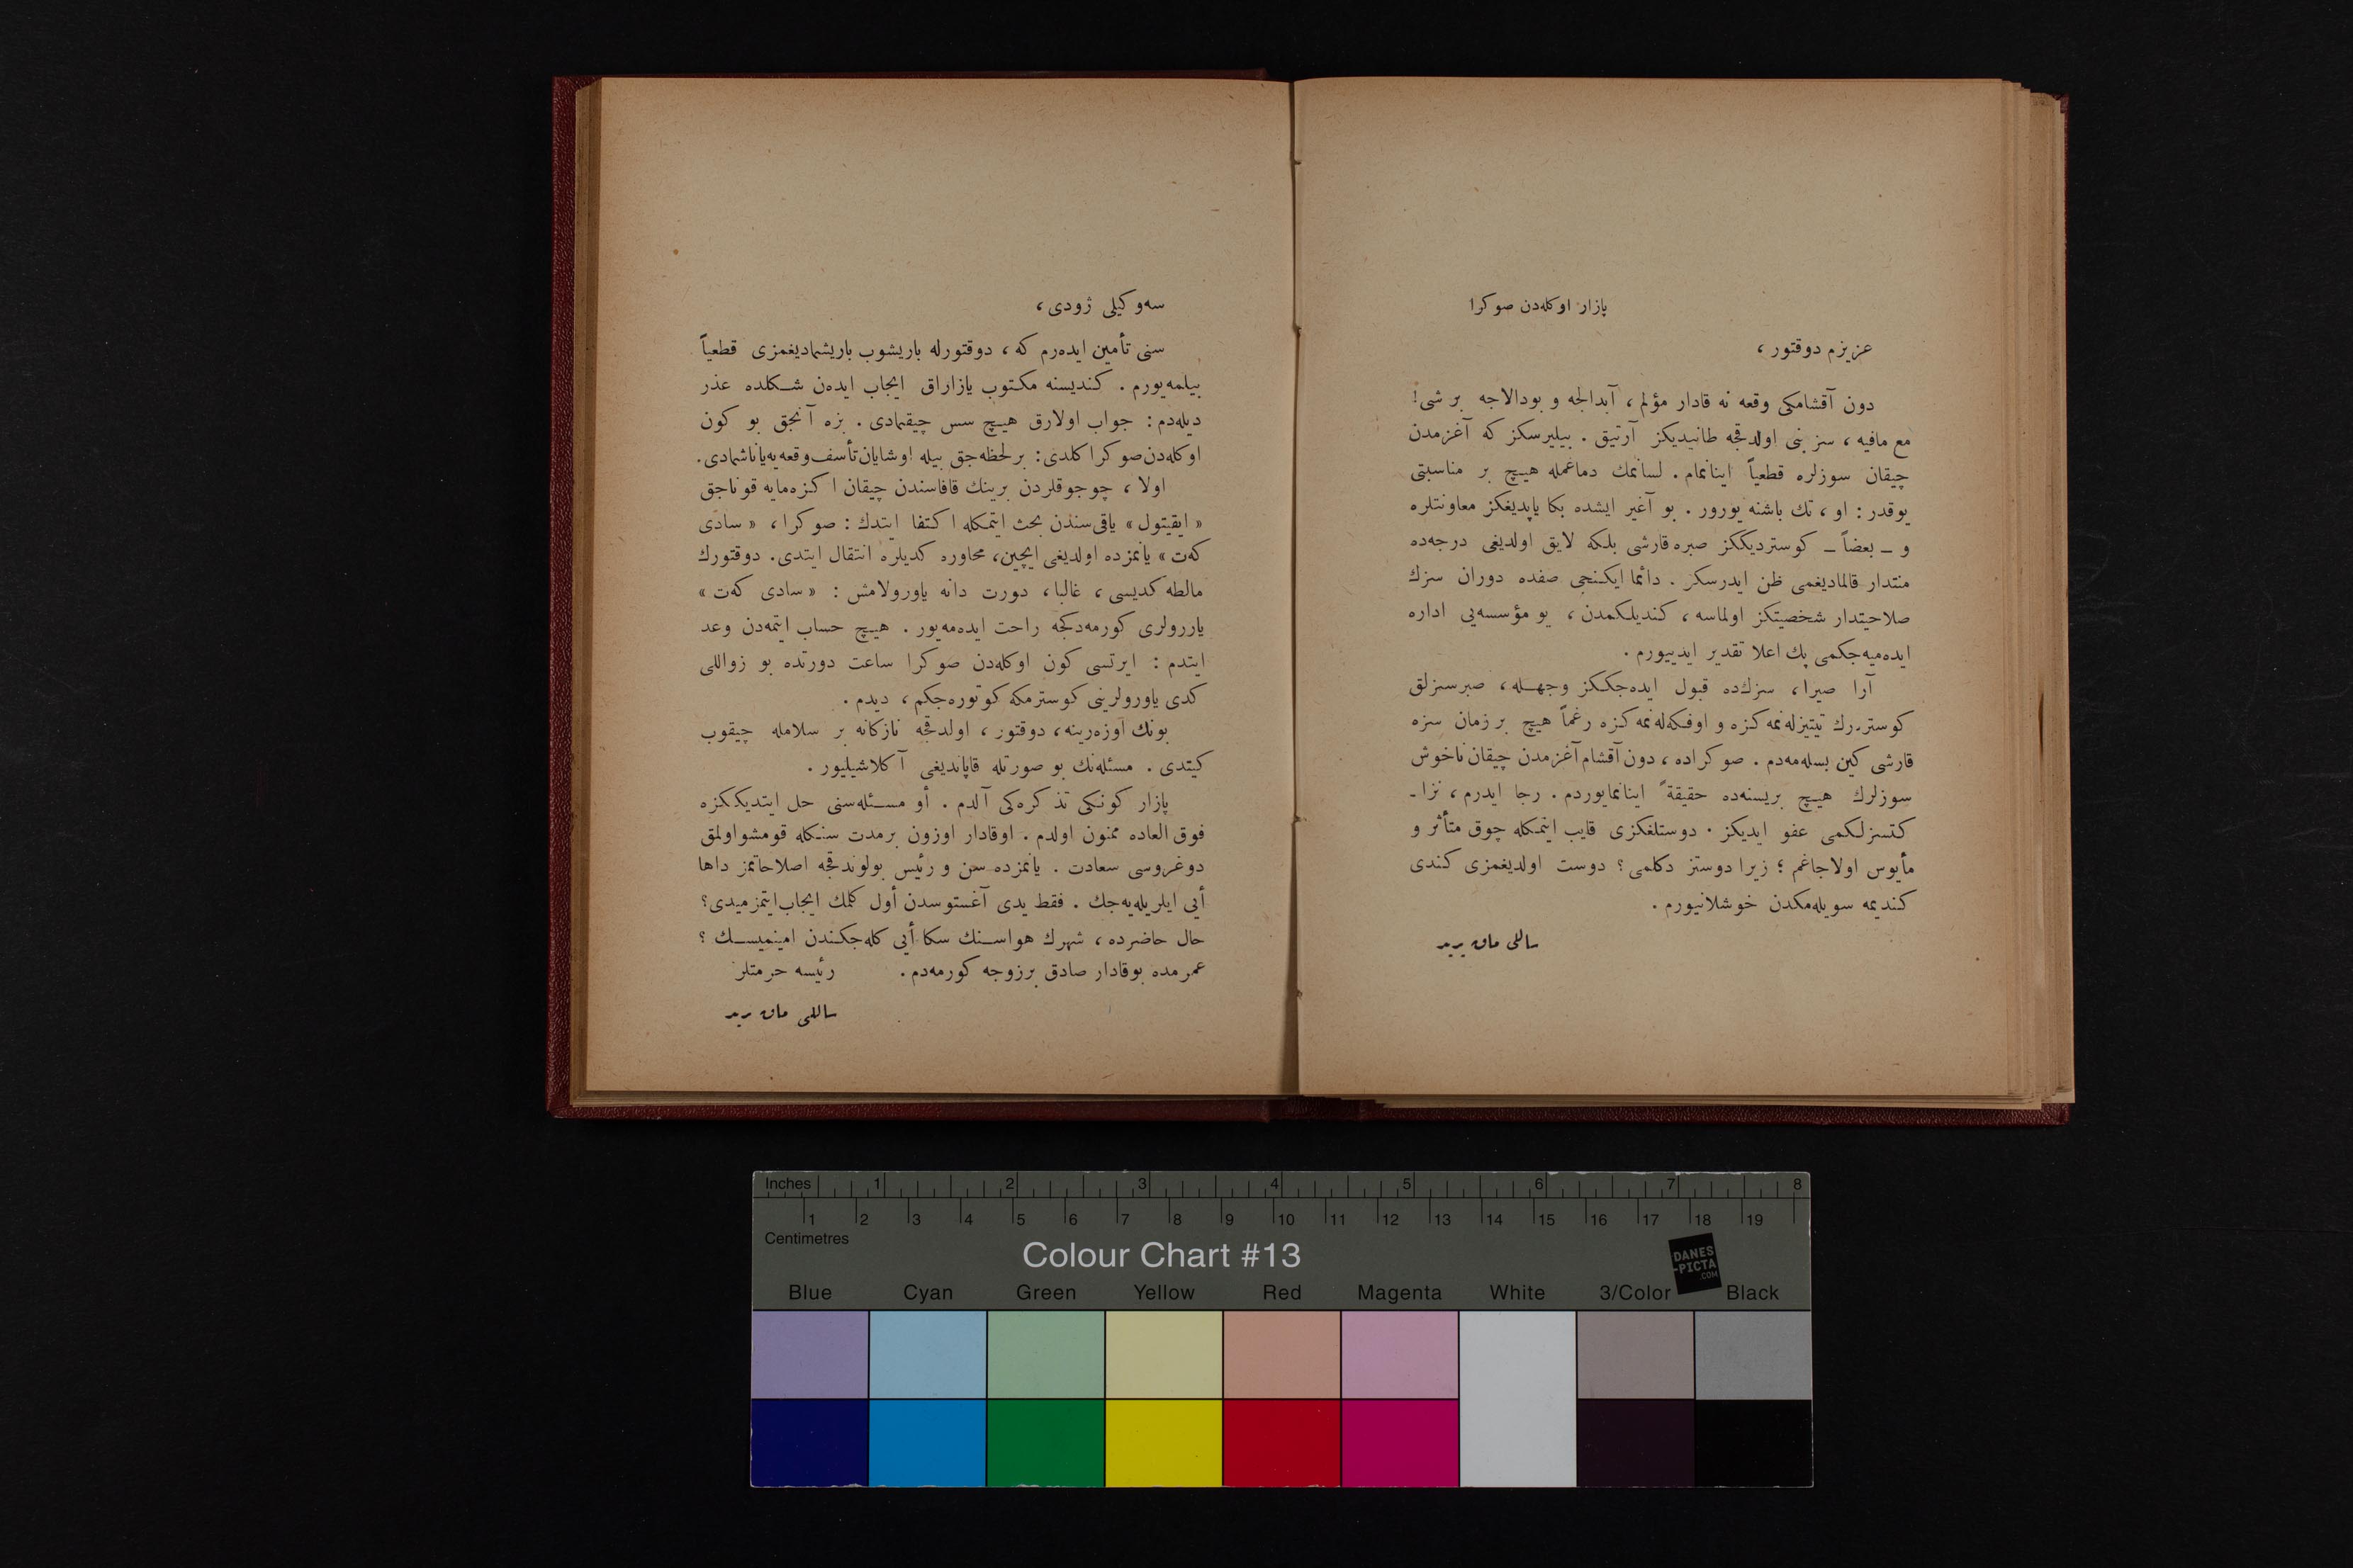 پازار اوكله‌دن صوكرا
عزيزم دوقتور ،
دون آقشامكى وقعه نه قادار مؤلم ، آبدالجه و بودالاجه بر شى !
مع مافيه ، سز بنى اولدقجه طانيديكز آرتيق . بيليرسكز كه آغزمدن
چيقان سوزلره قطعياً اينانمام . لسانمك دماغمله هيچ بر مناسبتى
يوقدر : او ، تك باشنه يورور . بو آغير ايشده بكا ياپديغكز معاونتلره
و ــ بعضاً ــ كوسترديككز صبره قارشى بلكه لايق اولديغى درجه‌ده
منتدار قالماديغمى ظن ايدرسكز . دائما ايكنجى صفده دوران سزك
صلاحيتدار شخصيتكز اولماسه ، كنديلكمدن ، بو مؤسسه‌يى اداره
ايده‌ميه‌جكمى پك اعلا تقدير ايدييورم .
آرا صيرا ، سزك‌ده قبول ايده‌جككز وجهـله ، صبرسزلق
كوستره‌رك تيتيزله‌نمه‌كزه و اوفكه‌له‌نمه‌كزه رغماً هيچ بر زمان سزه
قارشى كين بسله‌مه‌دم . صوكراده ، دون آقشام آغزمدن چيقان ناخوش
سوزلرك هيچ بريسنه‌ده حقيقةً اينانمايوردم . رجا ايدرم ، نزا ـ
كتسزلكمى عفو ايديكز . دوستلغكزى قايب ايتمكله چوق متأثر و
مأيوس اولاجاغم ؛ زيرا دوستز دكلمى ؟ دوست اولديغمزى كندى
كنديمه سويله‌مكدن خوشلانيورم .
ساللى ماق بريد
سه‌وكيلى ژودى ،
سنى تأمين ايده‌رم كه ، دوقتورله باريشوب باريشماديغمزى قطعياً
بيلمه‌يورم . كنديسنه مكتوب يازاراق ايجاب ايده‌ن شـكلده عذر
ديله‌دم : جواب اولارق هيچ سس چيقمادى . بزه آنجق بو كون
اوكله‌دن صوكرا كلدى : بر لحظه‌جق بيله او شايان تأسف وقعه‌يه ياناشمادى .
اولا ، چوجوقلردن برينك قافاسندن چيقان اكزه‌مايه قوناجق
« ايقيتول » ياقى‌سندن بحث ايتمكله اكتفا ايتدك : صوكرا ، « سادى
كه‌ت » يانمزده اولديغى ايچين ، محاوره كديلره انتقال ايتدى . دوقتورك
مالطه كديسى ، غالبا ، دورت دانه ياورولامش : « سادى كه‌ت »
ياررولرى كورمه‌دكجه راحت ايده‌مه‌يور . هيچ حساب ايتمه‌دن وعد
ايتدم : ايرتسى كون اوكله‌دن صوكرا ساعت دورتده بو زواللى
كدى ياورولرينى كوسترمكه كوتوره‌جكم ، ديدم .
بونك اوزه‌رينه ، دوقتور ، اولدقجه نازكانه بر سلامله چيقوب
كيتدى . مسئله‌نك بو صورتله قاپانديغى آكلاشيليور .
پازار كونكى تذكره‌كى آلدم . أو مسـئله‌سنى حل ايتديككزه
فوق العاده ممنون اولدم . اوقادار اوزون برمدت سنكله قومشو اولمق
دوغروسى سعادت . يانمزده سن و رئيس بولوندقجه اصلاحاتمز داها
أيى ايلريله‌يه‌جك . فقط يدى آغستوسدن أول كلمك ايجاب ايتمزميدى ؟
حال حاضرده ، شهرك هواسـنك سكا أيى كله‌جكندن امينميسـك ؟
عمرمده بوقادار صادق برزوجه كورمه‌دم . رئيسه حرمتلر
ساللى ماق بريد
Inches 1 2 3 4 5 6 7 8
1 2 3 4 5 6 7 8 9 10 11 12 13 14 15 16 17 18 19
Centimetres
Colour Chart #13
DANES
-PICTA
.COM
Blue Cyan Green Yellow Red Magenta White 3/Color Black